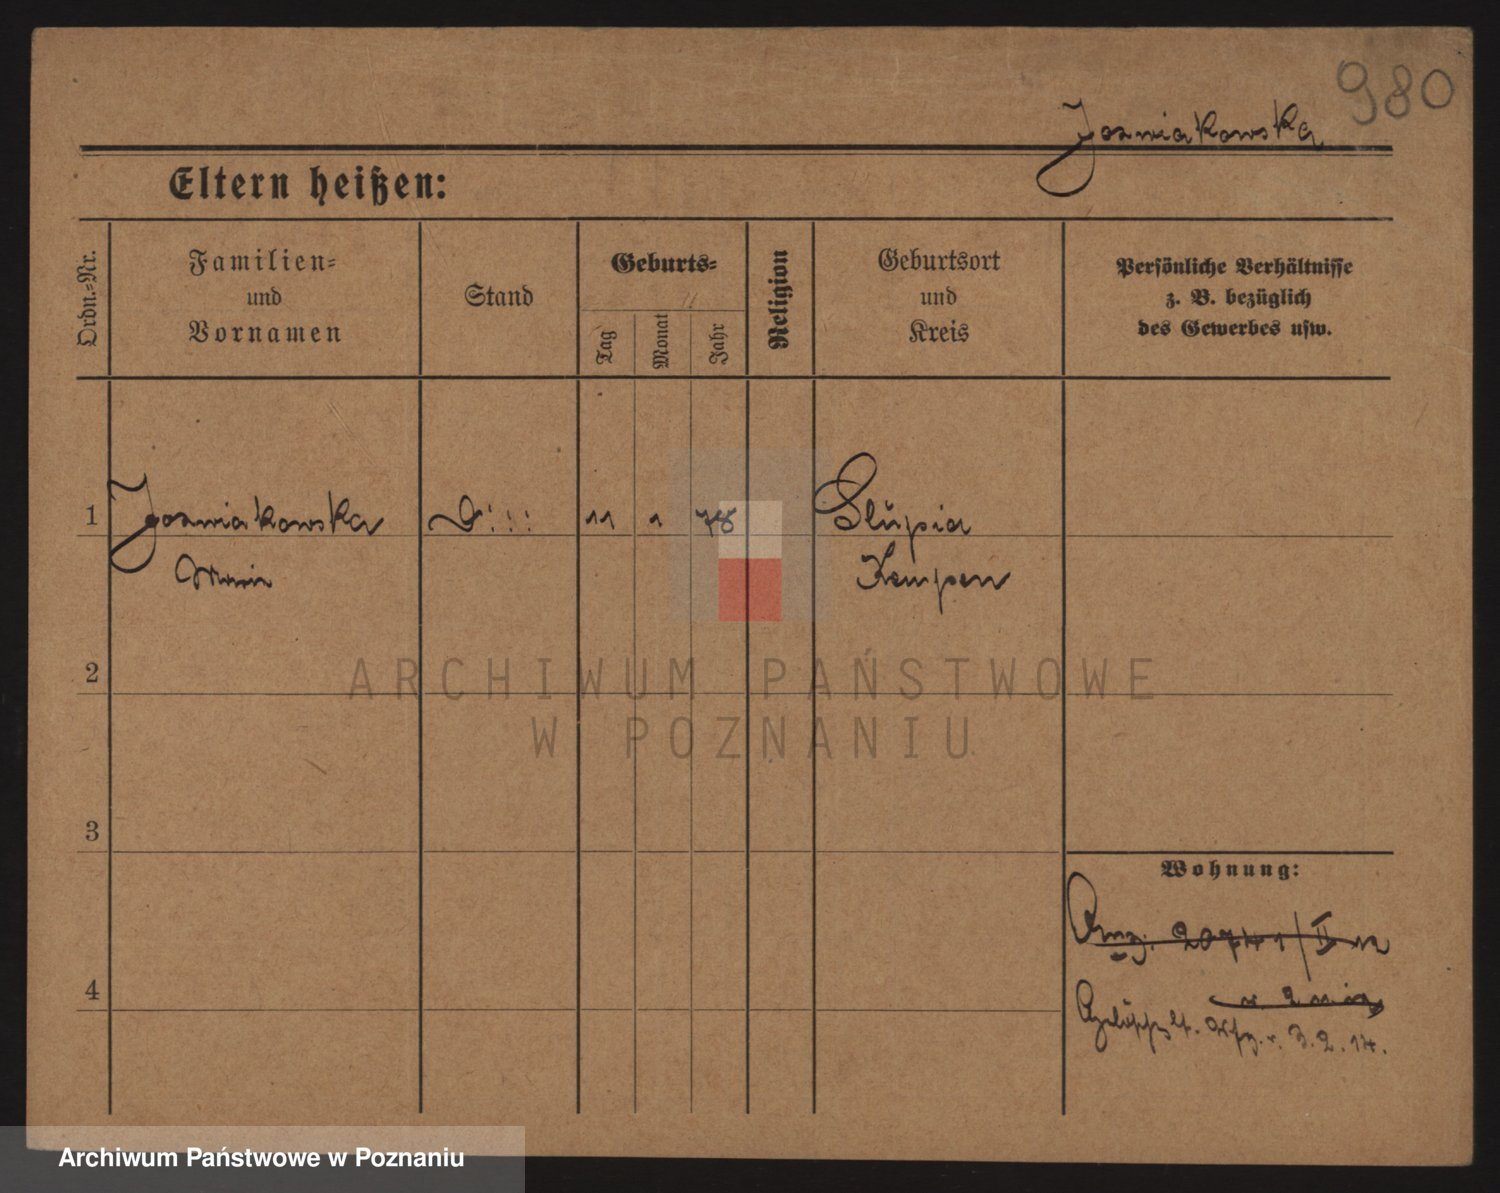 980
Joswiakowska
Eltern heißen:
Ordn.-Nr.
Familien-
und
Vornamen
Stand
Geburts-
Tag
Monat
Jahr
Religion
Geburtsort
und
Kreis
Persönliche Verhältnisse
z. B. bezüglich
des Gewerbes usw.
1 Joswiakowska 11 1 78 Slupia
Kempen
2
ARCHIWUM PAŃSTWOWE
W POZNANIU
3
Wohnung:
4
3.2.14.
Archiwum Państwowe w Poznaniu